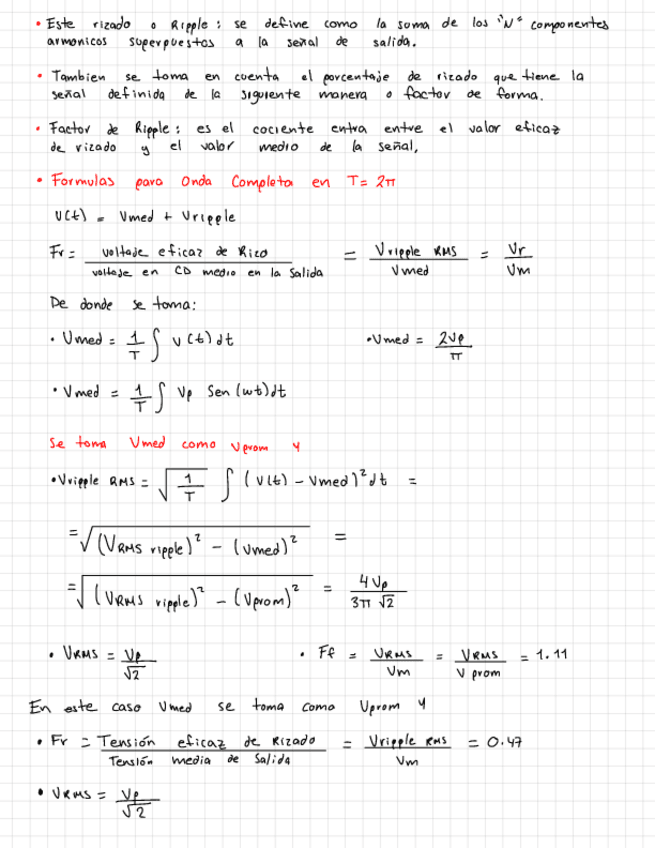 • Este rizado o Ripple: se define como la suma de los "N" componentes
armonicos superpuestos a la señal de salida.
• Tambien se toma en cuenta el porcentaje de rizado que tiene la
señal definida de la siguiente manera o factor de forma.
• Factor de Ripple: es el cociente entra entre el valor eficaz
de rizado y el valor medio de la señal,
• Formulas para Onda Completa en T= 2π
V(t) = Vmed + Vripple
Fr = voltaje eficaz de Rizo / voltaje en CD medio en la Salida = Vripple RMS / Vmed = Vr / Vm
De donde se toma:
• Vmed = 1/T ∫ v(t)dt •Vmed = 2Vp/π
• Vmed = 1/T ∫ Vp Sen (wt)dt
Se toma Vmed como Vprom y
•Vripple RMS = √(1/T) ∫ (V(t) - Vmed)² dt =
= √((VRMS ripple)² - (Vmed)²) =
= √((VRMS ripple)² - (Vprom)²) = 4Vp / 3π√2
• VRMS = Vp/√2 • Ff = VRMS / Vm = VRMS / V prom = 1.11
En este caso Vmed se toma como Vprom y
• Fr = Tensión eficaz de Rizado / Tensión media de Salida = Vripple RMS / Vm = 0.47
• VRMS = Vp/√2